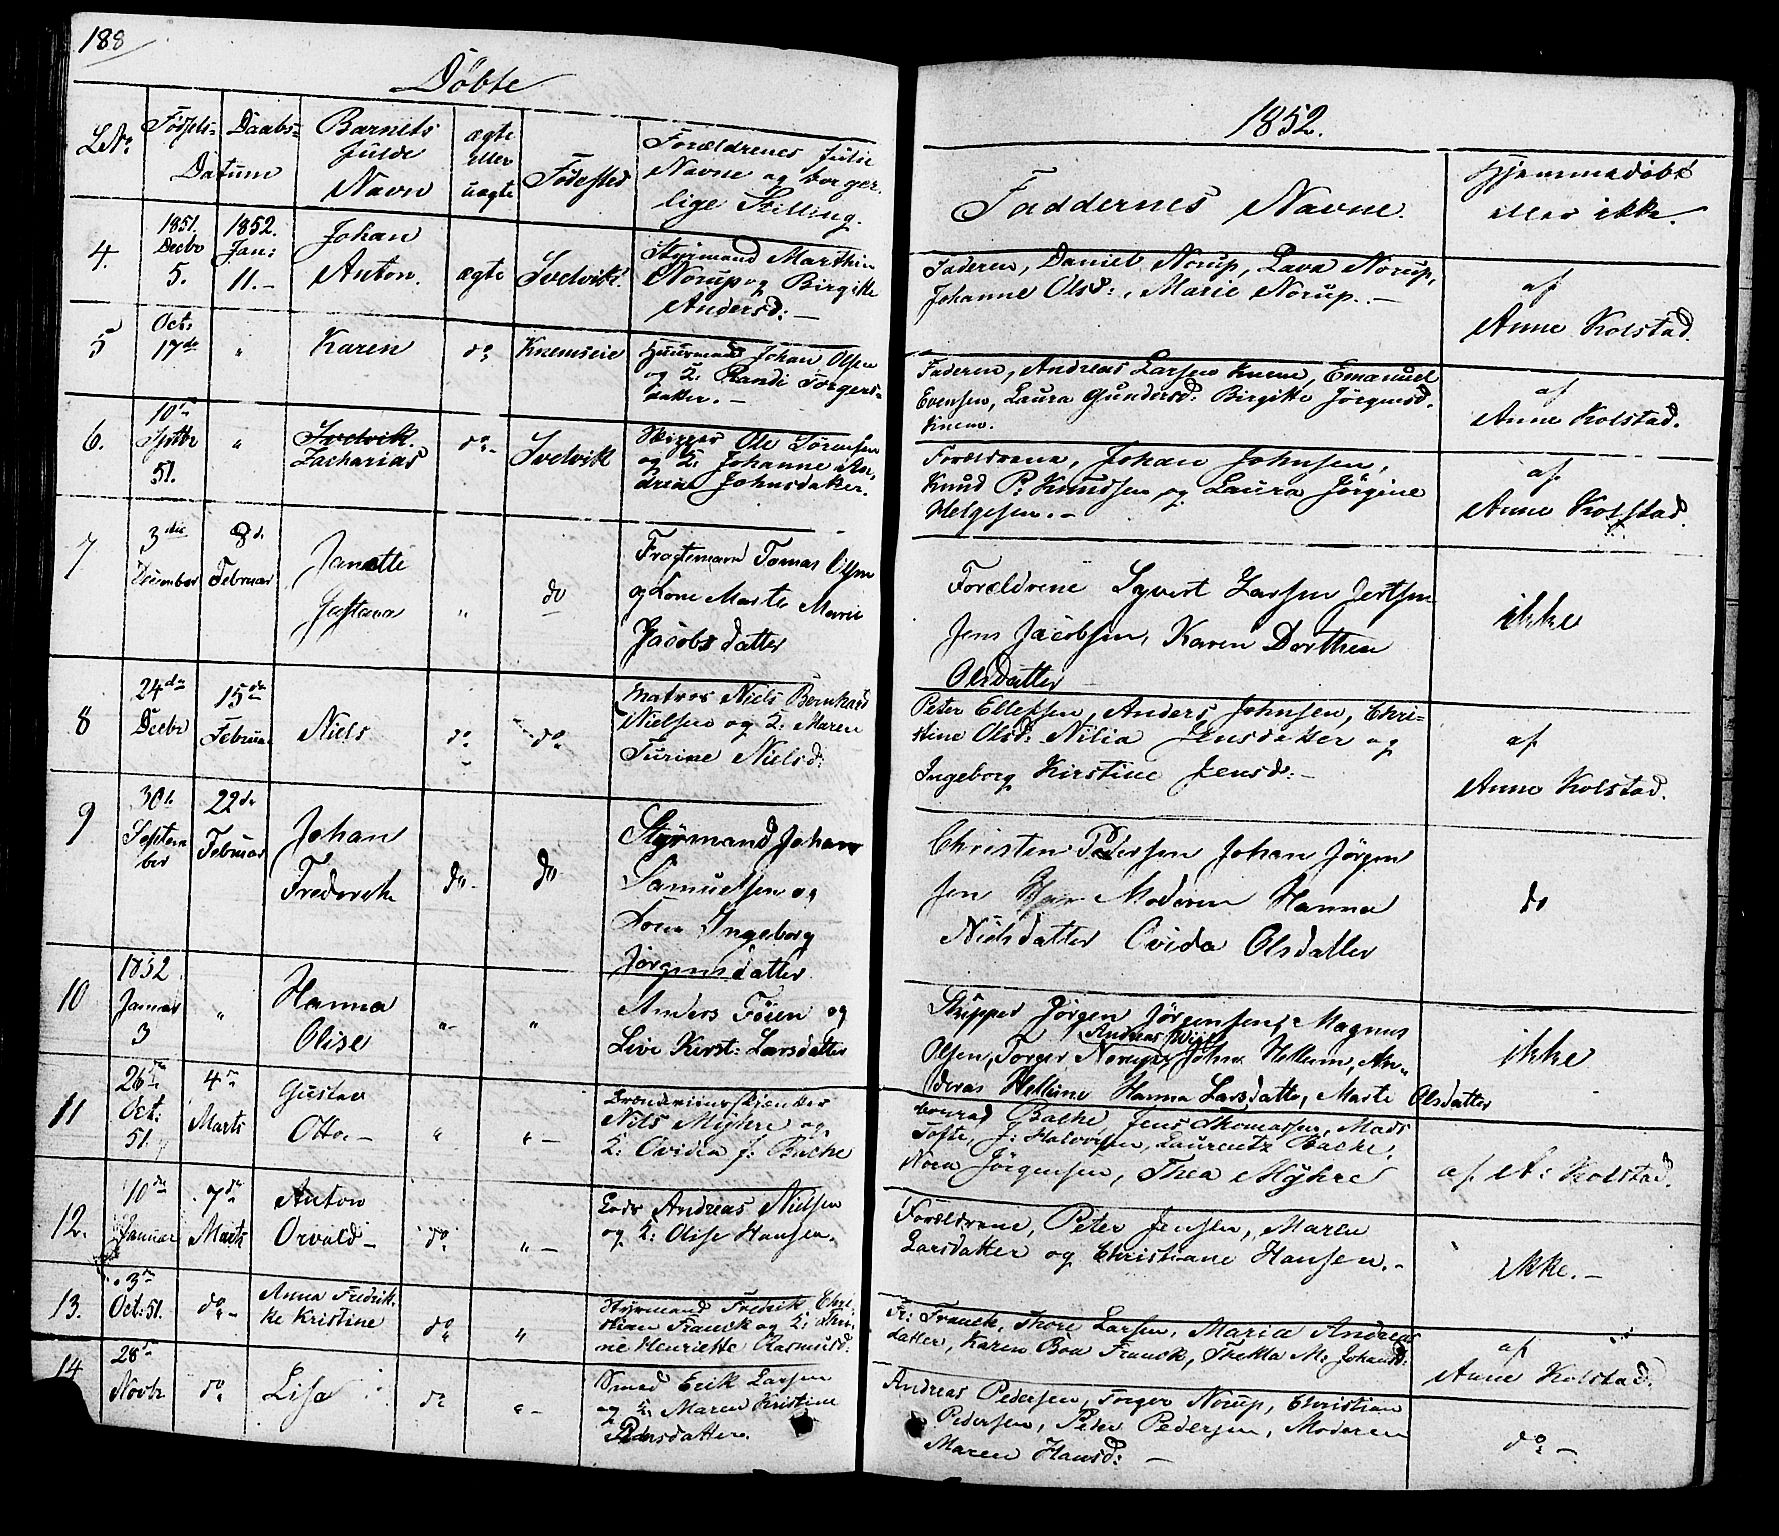 188
Döbte
1852.
LNo.
Födsels-
Daabs-
Datum
Barnets
fulde
Navn
ægte
eller
uægte
Födested
Forældrenes fulde
Navne og borger-
lige Stilling.
Faddernes Navne.
Hjemmedöbt
eller ikke.
4.
1851.
Decbr
5.
1852.
Jan:
11.-
Johan
Anton.
ægte
Svelvik.
Styrmand Marthin
Norup og Birgitte
Andersd: -
Faderen, Daniel Norup, Lava Norup,
Johanne Olsd:, Marie Norup. -
af
Anne Kolstad.
5
Oct.
17de
"
Karin
do
Knemseie
Huusmand Johan Olsen
og K: Randi Torgers-
datter. -
Faderen, Andreas Larsen Knem, Emanuel
Evensen, Laura Gundersd: Birgitte Jörgensd.
Knem.
af
Anne Kolstad.
6.
10de
Septbr
51.
"
Svelvik.
Zacharias
do -
Svelvik
Skipper Ole Sörensen
og K: Johanne An-
drea Johnsdatter.
Forældrene, Johan Johnsen,
Knud P: Knudsen og Laura Jörgine
Helgesen. -
af
Anne Kolstad.
7
3die
December
8d.
Februar
Janette
Gustava
"
do
Fragtemand Tomas Olsen
og Kone Marte Marie
Jacobsdatter
Forældrene Syvert Larsen
Jens Jacobsen, Karen Dorthea
Olsdatter
ikke
8
24de
Decbr
15de
Februar
Niels
do
do
Matros Niels Bernhard
Nielsen og K: Maren
Turine Nielsd:
Peter Ellefsen, Anders Johnsen, Chri-
stine Olsd: Nilia Jensdatter og
Ingeborg Kirstine Jensd: -
af
Anne Kolstad.
9
30te
Septem
ber
22de
Februar
Johan
Frederik
do -
do
Styrmand Johan
Samuelsen og
Kone Ingeborg
Jörgensdatter
Christen Pedersen Johan Jörgen
sen Moderen Hanna
Nielsdatter Ovida Olsdatter
do
10
1852
Januar
3
"
Hanna
Olise
"-
"
Anders Föien og
Live Kirst: Larsdatter
Skipper Jörgen Jörgensen, Magnus
Andreas Wiig
Olsen, Torger Norup, John Hellum, An-
dreas Hellum Hanna Larsdatter, Marte Olsdatter
ikke
11
26de
Oct:
51.
4de
Marts
Gustav
Otto. -
"
" -
Nils Myhre og
K: Ovidia f: Bache
Conrad Bache, Jens Thomassen, Mads
Tofte, J: Halvorsen, Laurentz Bache,
Nora Jörgensen, Thea Myhre
af A: Kolstad.
12.
10de
Januar
7de
Marts
Anton
Orvald -
do
" -
Lods Andreas Nielsen
og K: Olise Hansen.
Forældrene, Peter Jensen, Maren
Larsdatter og Christiane Hansen. -
ikke. -
13.
3de
Oct: 51.
do -
Anna Fredrik-
ke Kristine
do
"
Styrmand Fredrik Chri-
stian Franck og K: Thri-
ne Henriette Rasmusd:
Fr: Franck, Thore Larsen, Maria Andreas
datter, Karen Boa Franck, Thekla M: Johansd:
af
Anne Kolstad.
14
28de
Novbr
do
Lisa
do
" -
Smed Erik Larsen
og K: Maren Kristine
Pedersdatter.
Andreas Pedersen, Torger Norup, Christian
Pedersen, Peder Pedersen, Moderen
Maren Hansd: -
do -